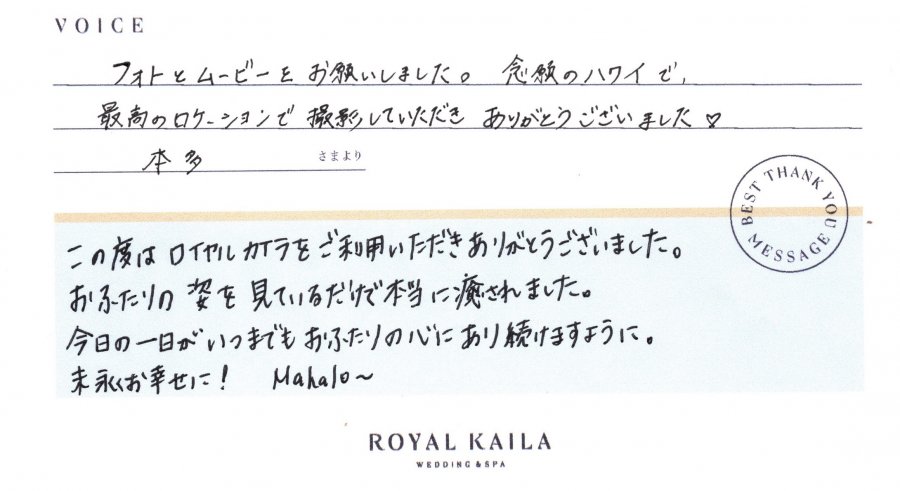 VOICE
フォトとムービーをお願いしました。念願のハワイで、
最高のロケーションで撮影していただきありがとうございました♡
本多 さまより
BEST THANK YOU MESSAGE
この度はロイヤルカイラをご利用いただきありがとうございました。
おふたりの姿を見ているだけで本当に癒されました。
今日の一日がいつまでもおふたりの心にあり続けますように。
末永くお幸せに! Mahalo~
ROYAL KAILA
WEDDING & SPA